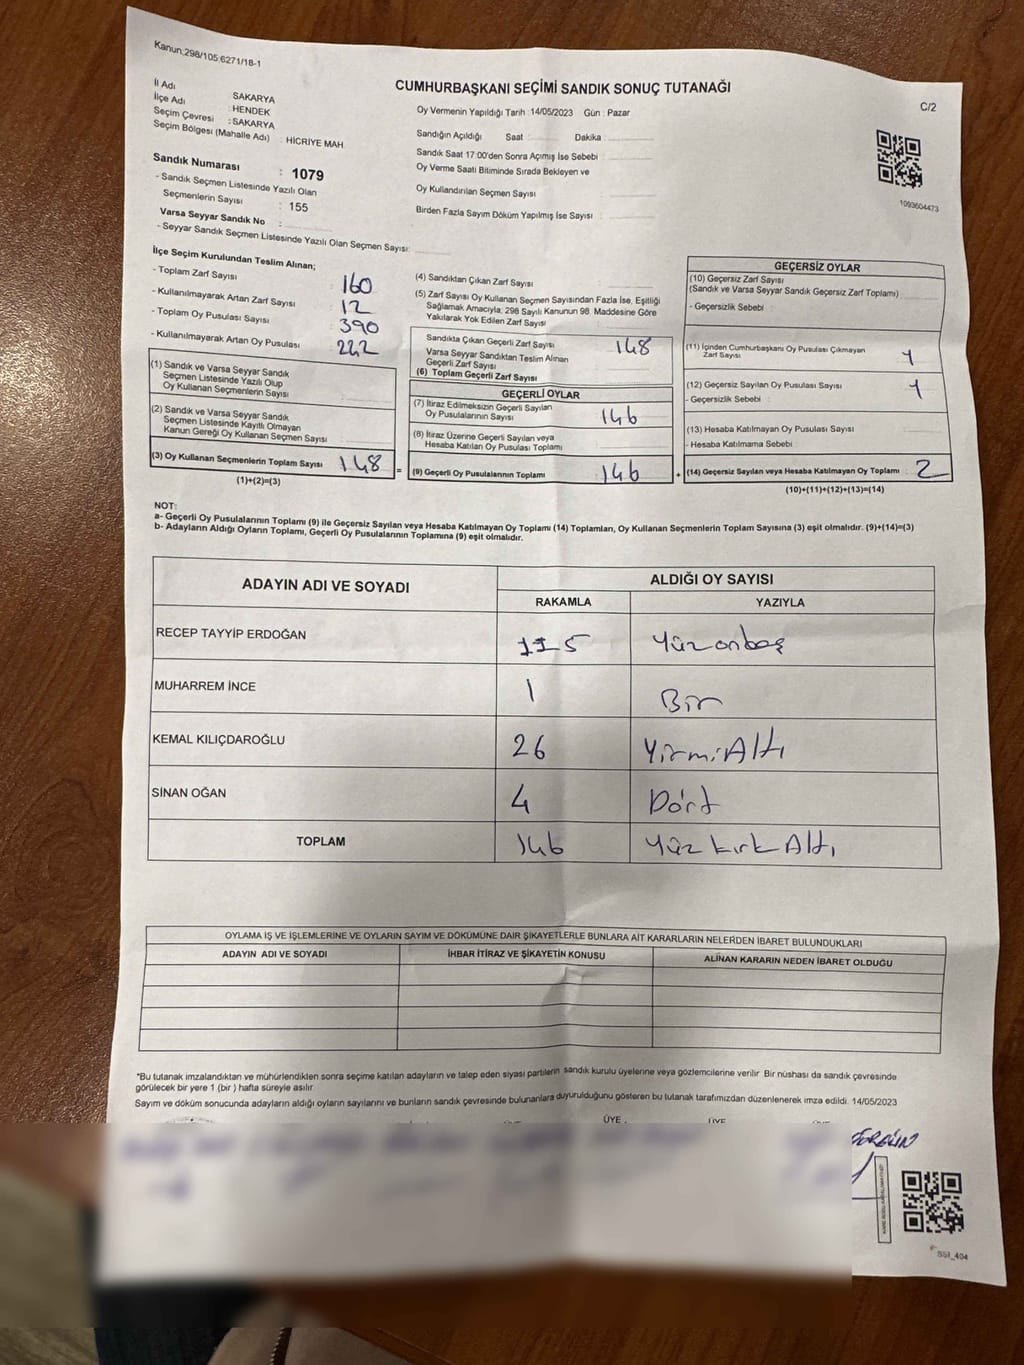 Kanun:298/105;6271/18-1
CUMHURBAŞKANI SEÇİMİ SANDIK SONUÇ TUTANAĞI
C/2
İl Adı SAKARYA
İlçe Adı : HENDEK
Seçim Çevresi : SAKARYA
Seçim Bölgesi (Mahalle Adı) : HİCRİYE MAH.
Sandık Numarası : 1079
- Sandık Seçmen Listesinde Yazılı Olan
Seçmenlerin Sayısı : 155
Varsa Seyyar Sandık No :
- Seyyar Sandık Seçmen Listesinde Yazılı Olan Seçmen Sayısı:
Oy Vermenin Yapıldığı Tarih : 14/05/2023 Gün : Pazar
Sandığın Açıldığı Saat : Dakika :
Sandık Saat 17:00'den Sonra Açımış İse Sebebi :
Oy Verme Saati Bitiminde Sırada Bekleyen ve
Oy Kullandırılan Seçmen Sayısı :
Birden Fazla Sayım Döküm Yapılmış İse Sayısı :
1093604473
İlçe Seçim Kurulundan Teslim Alınan;
- Toplam Zarf Sayısı : 160
- Kullanılmayarak Artan Zarf Sayısı : 12
- Toplam Oy Pusulası Sayısı : 390
- Kullanılmayarak Artan Oy Pusulası : 242
(1) Sandık ve Varsa Seyyar Sandık
Seçmen Listesinde Yazılı Olup
Oy Kullanan Seçmenlerin Sayısı :
(2) Sandık ve Varsa Seyyar Sandık
Seçmen Listesinde Kayıtlı Olmayan
Kanun Gereği Oy Kullanan Seçmen Sayısı :
(3) Oy Kullanan Seçmenlerin Toplam Sayısı : 148
(1)+(2)=(3)
=
(4) Sandıktan Çıkan Zarf Sayısı :
(5) Zarf Sayısı Oy Kullanan Seçmen Sayısından Fazla İse, Eşitliği
Sağlamak Amacıyla; 298 Sayılı Kanunun 98. Maddesine Göre
Yakılarak Yok Edilen Zarf Sayısı :
Sandıkta Çıkan Geçerli Zarf Sayısı : 148
Varsa Seyyar Sandıktan Teslim Alınan
Geçerli Zarf Sayısı :
(6) Toplam Geçerli Zarf Sayısı :
GEÇERLİ OYLAR
(7) İtiraz Edilmeksizin Geçerli Sayılan
Oy Pusulalarının Sayısı : 146
(8) İtiraz Üzerine Geçerli Sayılan veya
Hesaba Katılan Oy Pusulası Toplamı :
(9) Geçerli Oy Pusulalarının Toplamı : 146
+
GEÇERSİZ OYLAR
(10) Geçersiz Zarf Sayısı
(Sandık ve Varsa Seyyar Sandık Geçersiz Zarf Toplamı) :
- Geçersizlik Sebebi :
(11) İçinden Cumhurbaşkanı Oy Pusulası Çıkmayan
Zarf Sayısı : 1
(12) Geçersiz Sayılan Oy Pusulası Sayısı : 1
- Geçersizlik Sebebi :
(13) Hesaba Katılmayan Oy Pusulası Sayısı :
- Hesaba Katılmama Sebebi :
(14) Geçersiz Sayılan veya Hesaba Katılmayan Oy Toplamı : 2
(10)+(11)+(12)+(13)=(14)
NOT:
a- Geçerli Oy Pusulalarının Toplamı (9) ile Geçersiz Sayılan veya Hesaba Katılmayan Oy Toplamı (14) Toplamları, Oy Kullanan Seçmenlerin Toplam Sayısına (3) eşit olmalıdır. (9)+(14)=(3)
b- Adayların Aldığı Oyların Toplamı, Geçerli Oy Pusulalarının Toplamına (9) eşit olmalıdır.
ADAYIN ADI VE SOYADI ALDIĞI OY SAYISI
RAKAMLA YAZIYLA
RECEP TAYYİP ERDOĞAN 115 Yüzonbeş
MUHARREM İNCE 1 Bir
KEMAL KILIÇDAROĞLU 26 YirmiAltı
SİNAN OĞAN 4 Dört
TOPLAM 146 Yüz kırk Altı
OYLAMA İŞ VE İŞLEMLERİNE VE OYLARIN SAYIM VE DÖKÜMÜNE DAİR ŞİKAYETLERLE BUNLARA AİT KARARLARIN NELERDEN İBARET BULUNDUKLARI
ADAYIN ADI VE SOYADI İHBAR İTİRAZ VE ŞİKAYETİN KONUSU ALINAN KARARIN NEDEN İBARET OLDUĞU
*Bu tutanak imzalandıktan ve mühürlendikten sonra seçime katılan adayların ve talep eden siyasi partilerin sandık kurulu üyelerine veya gözlemcilerine verilir. Bir nüshası da sandık çevresinde
görülecek bir yere 1 (bir) hafta süreyle asılır.
Sayım ve döküm sonucunda adayların aldığı oyların sayılarını ve bunların sandık çevresinde bulunanlara duyurulduğunu gösteren bu tutanak tarafımızdan düzenlenerek imza edildi. 14/05/2023
ÜYE ÜYE
SSI_404